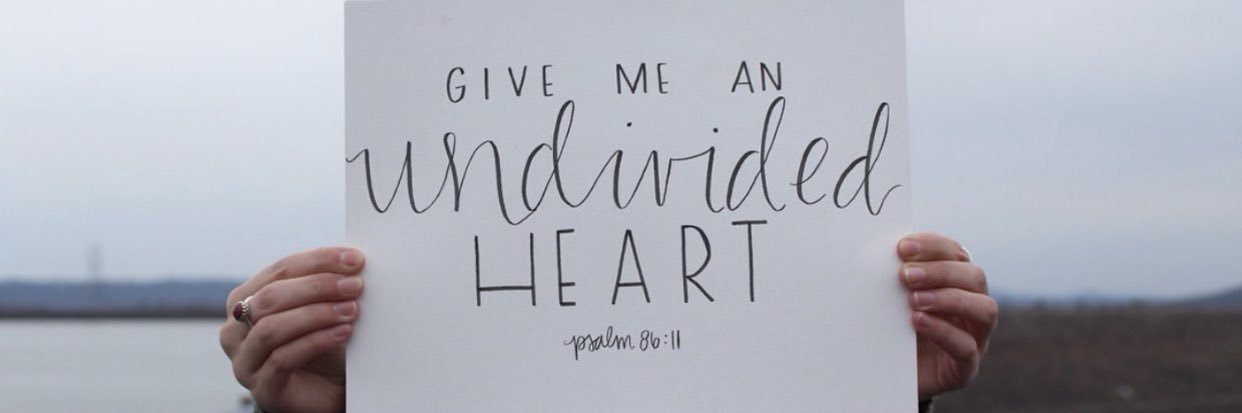 GIVE ME AN
undivided
HEART
psalm 86:11